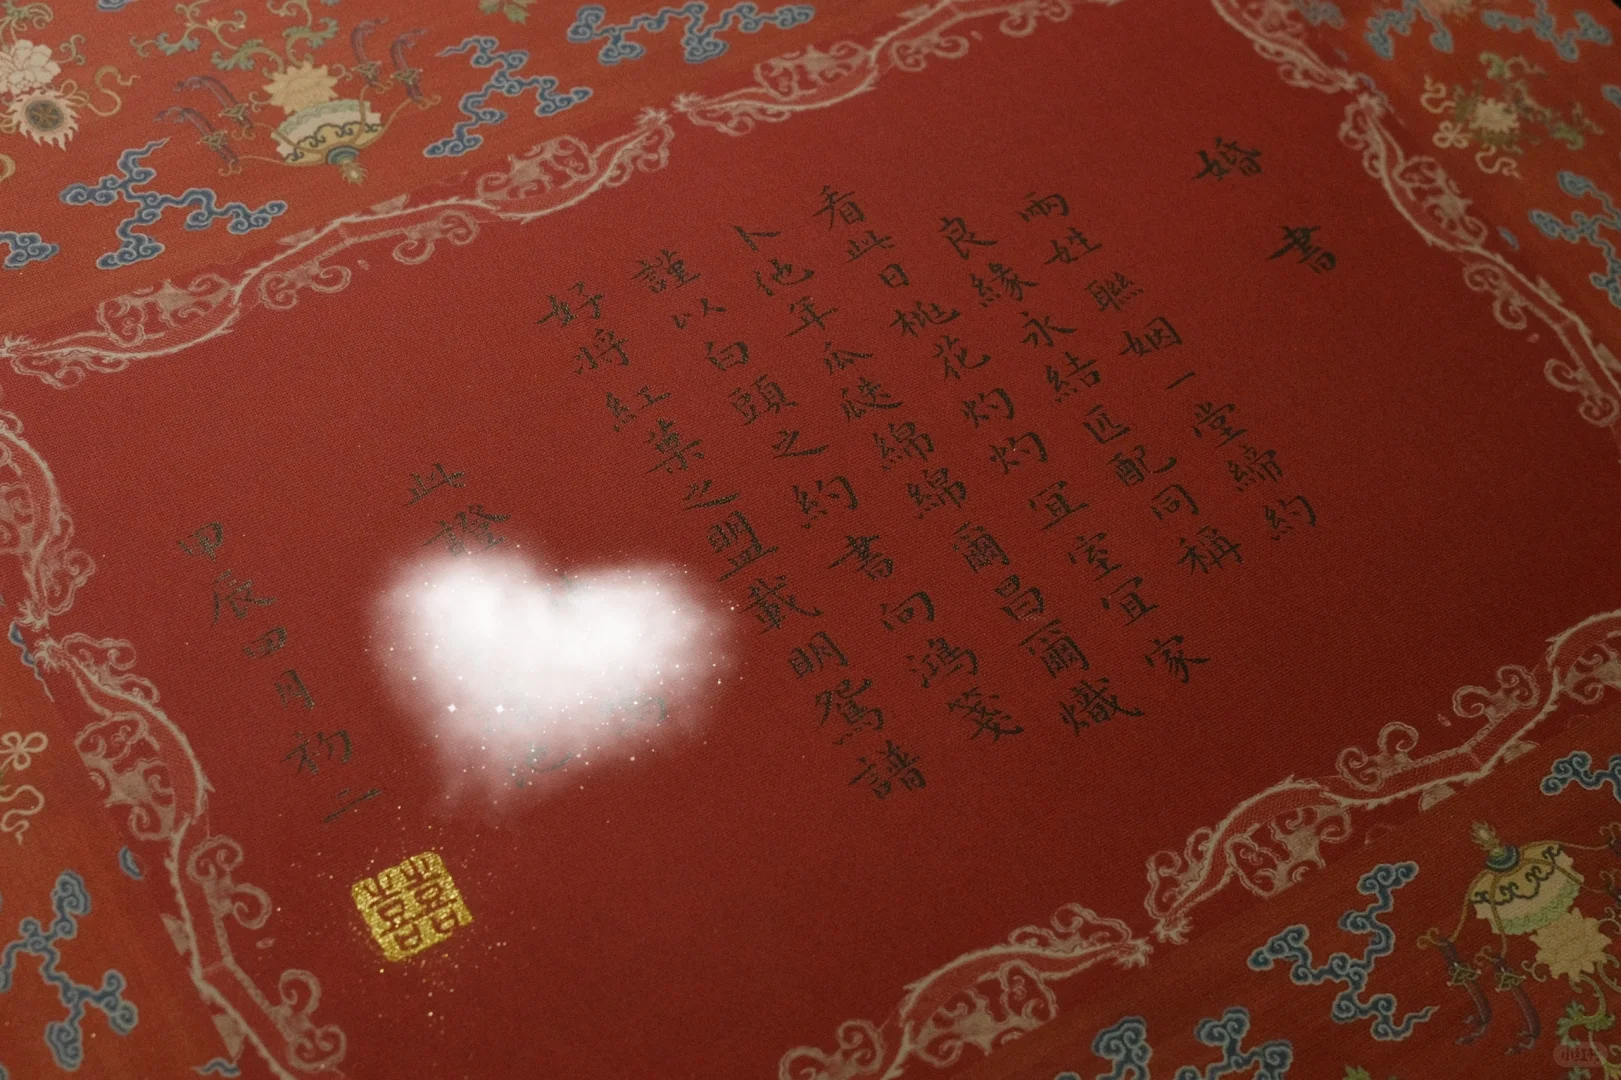 婚書
兩姓聯姻一堂締約
良緣永結匹配同稱
看此日桃花灼灼宜室宜家
卜他年瓜瓞綿綿爾昌爾熾
謹以白頭之約書向鴻箋
好將紅葉之盟載明鴛譜
此證
甲辰四月初二
囍